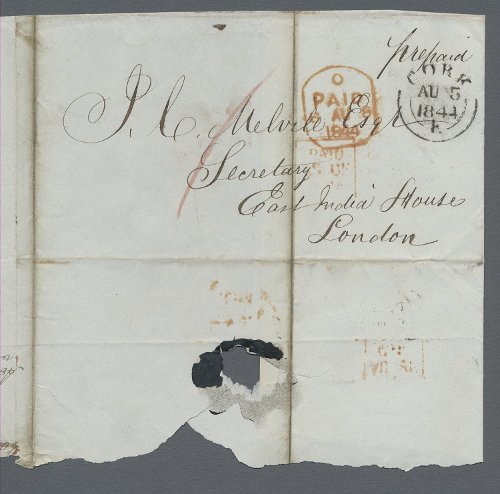 prepaid
CORK
AU 5
1844
E
PAID
AU
1844
PAID
J. C. Melvill Esqr
Secretary
East India House
London